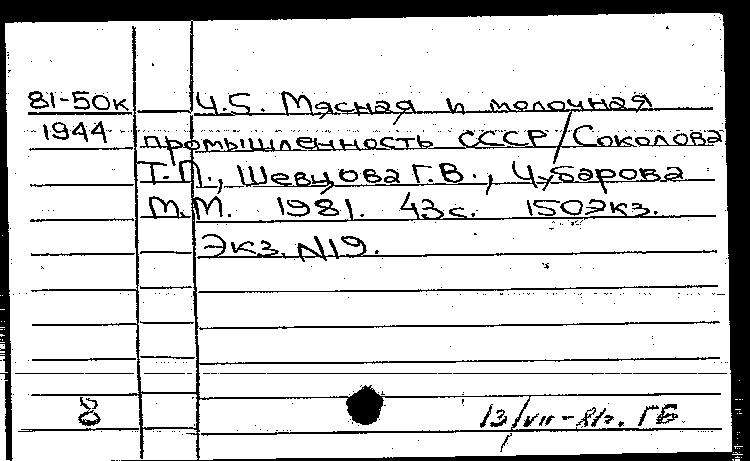 81-50к Ч.5. Мясная и молочная
1944 промышленность СССР/Соколова
Т.П., Шевцова Г.В., Чубарова
М.М. 1981. 43с. 150экз.
Экз. N19.
8 13/VII-81г. ГБ